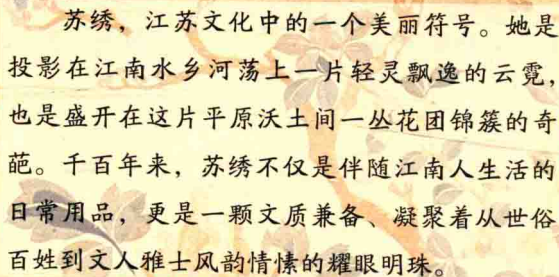 苏绣，江苏文化中的一个美丽符号。她是
投影在江南水乡河荡上一片轻灵飘逸的云霓，
也是盛开在这片平原沃土间一丛花团锦簇的奇
葩。千百年来，苏绣不仅是伴随江南人生活的
日常用品，更是一颗文质兼备、凝聚着从世俗
百姓到文人雅士风韵情愫的耀眼明珠。